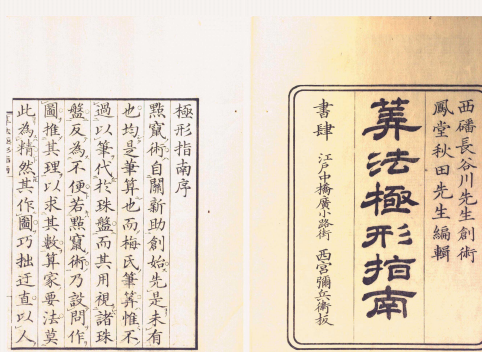 西磻長谷川先生創術
鳳堂秋田先生編輯
算法極形指南
書肆 江戸中橋廣小路街 西宮彌兵衛板
極形指南序
點竄術自關新助創始先是未有
也均是筆算也而梅氏筆筭惟不
過以筆代於珠盤而其用視諸珠
盤反為不便若點竄術乃設問作
圖推其理以求其數算家要法莫
此為精然其作圖巧拙迂直以人